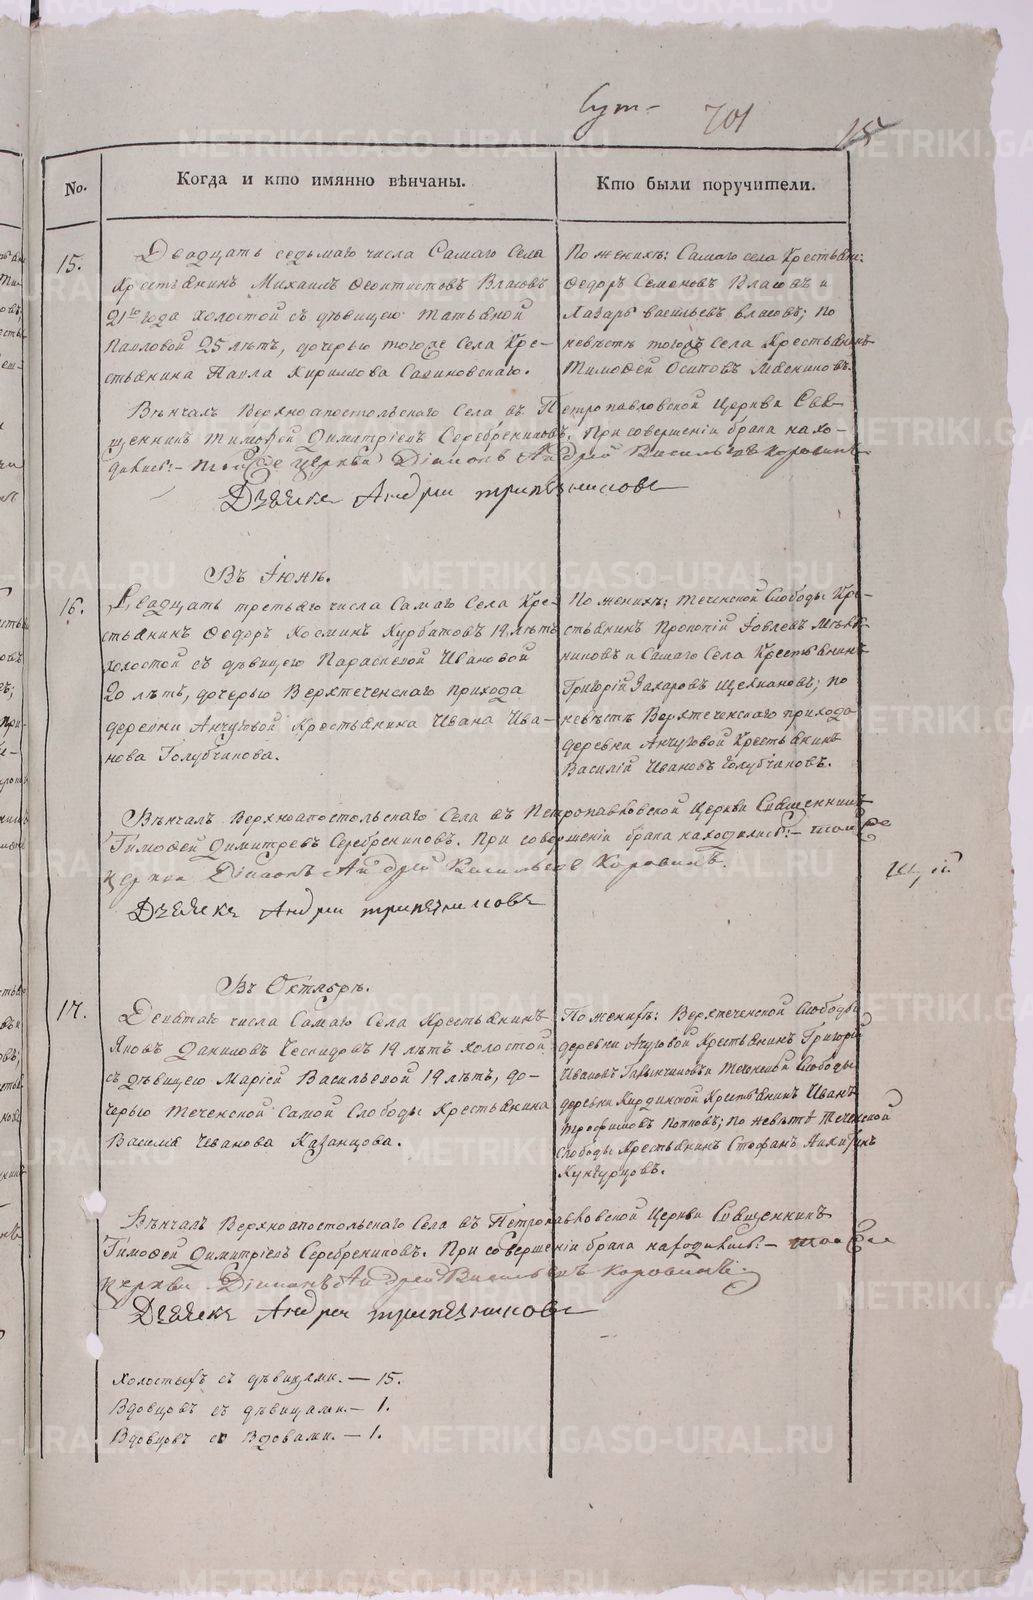 701
15
No.
Когда и кто имянно вѣнчаны.
Кто были поручители.
15.
Двадцать седьмаго числа Самаго Села
Крестьянинъ Михаилъ Ѳеоктистовъ Власовъ
21го года холостой съ дѣвицею Татьяной
Павловой 25 лѣтъ, дочерью тогоже Села Кре-
стьянина Павла Кириллова Садиновскаго.
По женихѣ: Самаго села Крестьяне:
Ѳедоръ Семеновъ Власовъ и
Лазарь васильевъ власовъ; по
невѣстѣ тогожъ Села Крестьянинъ
Тимоѳей Осиповъ Мясниковъ.
Вѣнчалъ Верхноапостольскаго Села въ Петропавловской Церкви Свя-
щенникъ Тимоѳей Димитріевъ Серебрениковъ. При совершеніи брака нахо-
дились:- тойже церкви Діаконъ Андрей Васильевъ Коровинъ
Дьячекъ Андрей трапезниковъ
Въ Іюнѣ.
16.
Двадцать третьяго числа Самаго Села Кре-
стьянинъ Ѳедоръ Козминъ Курбатовъ 19 лѣтъ
холостой съ дѣвицею Параскевой Ивановой
20 лѣтъ, дочерью Верхтеченскаго прихода
деревни Анчуговой Крестьянина Ивана Ива-
нова Голубчикова.
По женихѣ: Теченской Слободы Кре-
стьянинъ Прокопій Іовлевъ
никовъ и Самаго Села Крестьянинъ
Григорій Захаровъ Щекановъ; по
невѣстѣ Верхтеченскаго прихода
деревни Анчуговой Крестьянинъ
Василій Ивановъ Голубчиковъ.
Вѣнчалъ Верхноапостольскаго Села въ Петропавловской Церкви Священникъ
Тимоѳей Димитревъ Серебрениковъ. При совершеніи брака находились:- тойже
церкви Діаконъ Андрей Васильевъ Коровинъ.
Дьячекъ Андрей трапезниковъ
Въ Октябрѣ.
17.
Девятаго числа Самаго Села Крестьянинъ
Яковъ Даниловъ Ческидовъ 19 лѣтъ холостой
съ дѣвицею Маріей Васильевой 19 лѣтъ, до-
черью Теченской Самой Слободы Крестьянина
Василья Иванова Казанцова.
По женихѣ: Верхтеченской Слободы
деревни Анчуговой Крестьянинъ Григорій
Ивановъ и Теченской Слободы
деревни Кирдинской Крестьянинъ Иванъ
трофимовъ Поповъ; по невѣстѣ Теченской
Слободы Крестьянинъ Стефанъ Никитинъ
Кунгурцовъ.
Вѣнчалъ Верхноапостольскаго Села въ Петропавловской Церкви Священникъ
Тимоѳей Димитріевъ Серебрениковъ. При совершеніи брака находились:- тойже
церкви Діаконъ Андрей Васильевъ Коровинъ.
Дьячекъ Андрей трапезниковъ
Холостыхъ съ дѣвицами. — 15.
Вдовцовъ съ дѣвицами. — 1.
Вдовцовъ со Вдовами. — 1.
METRIKI.GASO-URAL.RU